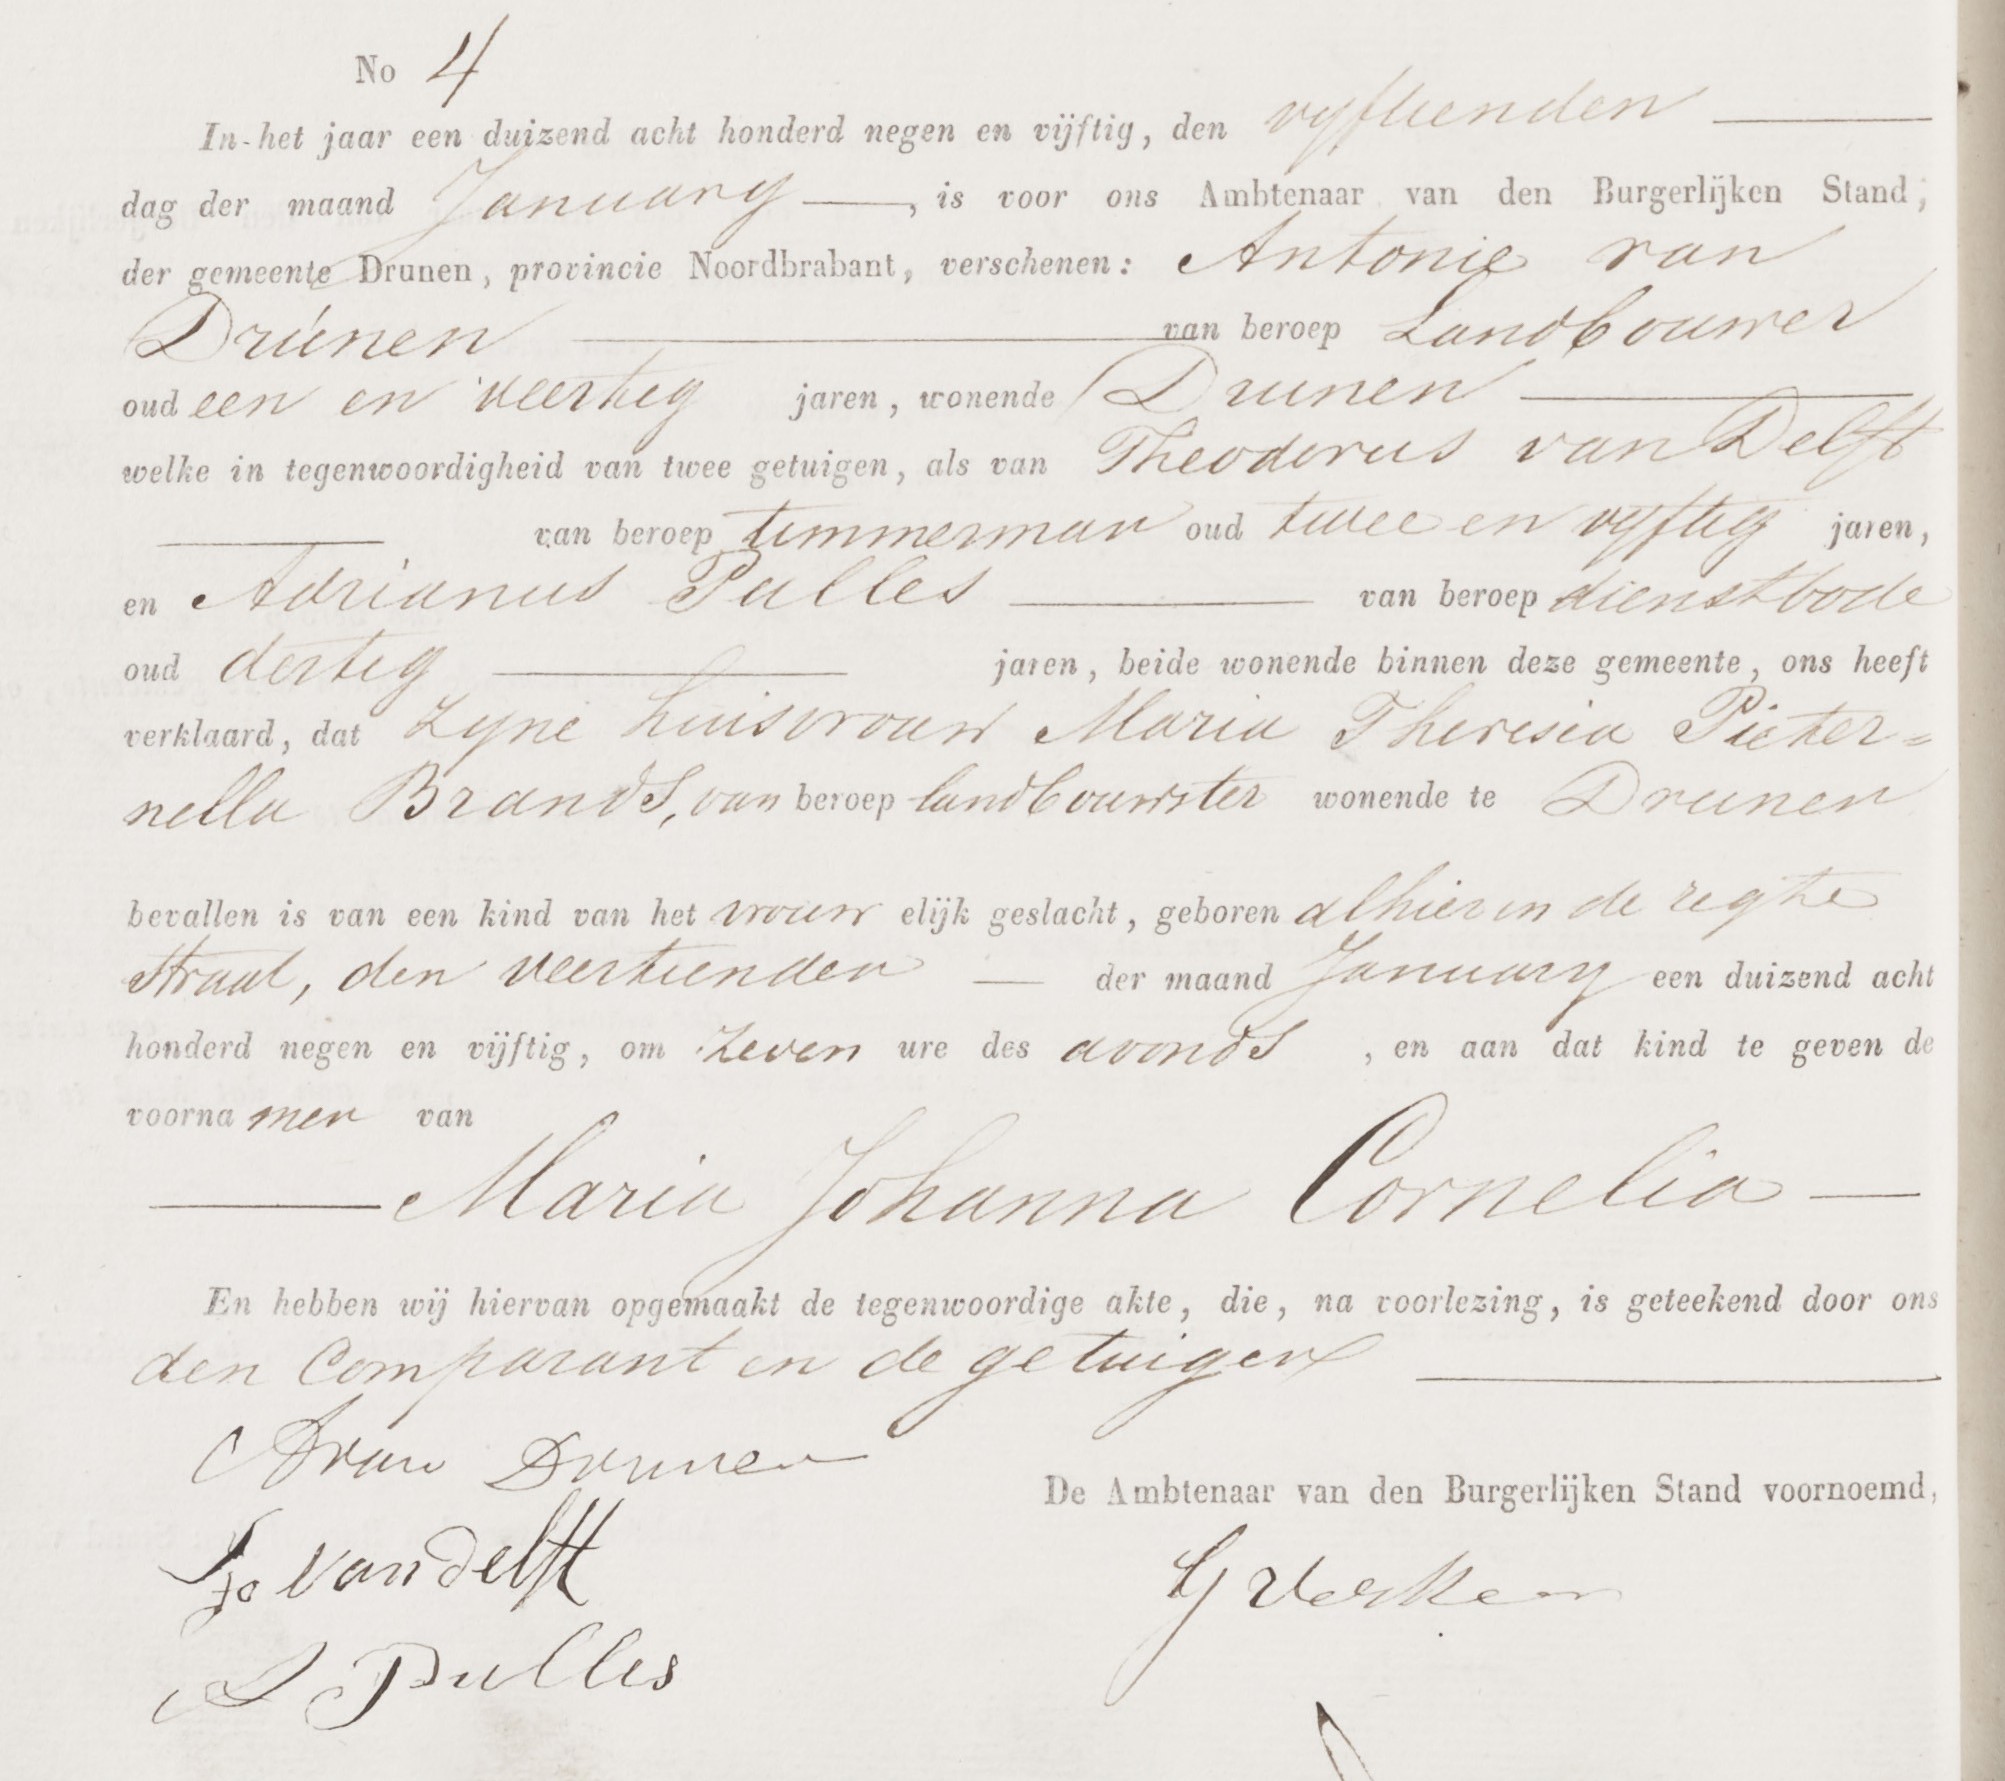 No 4
In het jaar een duizend acht honderd negen en vijftig, den vyftienden
dag der maand January, is voor ons Ambtenaar van den Burgerlijken Stand,
der gemeente Drunen, provincie Noordbrabant, verschenen: Antonie van
Drúnen van beroep Landbouwer
oud een en veertig jaren, wonende Drunen
welke in tegenwoordigheid van twee getuigen, als van Theodorus van Delft
van beroep timmerman oud twee en vyftig jaren,
en Adrianus Pulles van beroep dienstbode
oud dertig jaren, beide wonende binnen deze gemeente, ons heeft
verklaard, dat zyne huisvrouw Maria Theresia Pieter=
nella Brands, van beroep landbouwster wonende te Drunen
bevallen is van een kind van het vrouw elijk geslacht, geboren alhier in de regte
Straat, den veertienden der maand January een duizend acht
honderd negen en vijftig, om zeven ure des avonds, en aan dat kind te geven de
voorna men van
Maria Johanna Cornelia
En hebben wij hiervan opgemaakt de tegenwoordige akte, die, na voorlezing, is geteekend door ons
den Comparant en de getuigen
A van Drunen
De Ambtenaar van den Burgerlijken Stand voornoemd,
van delft
A Pulles